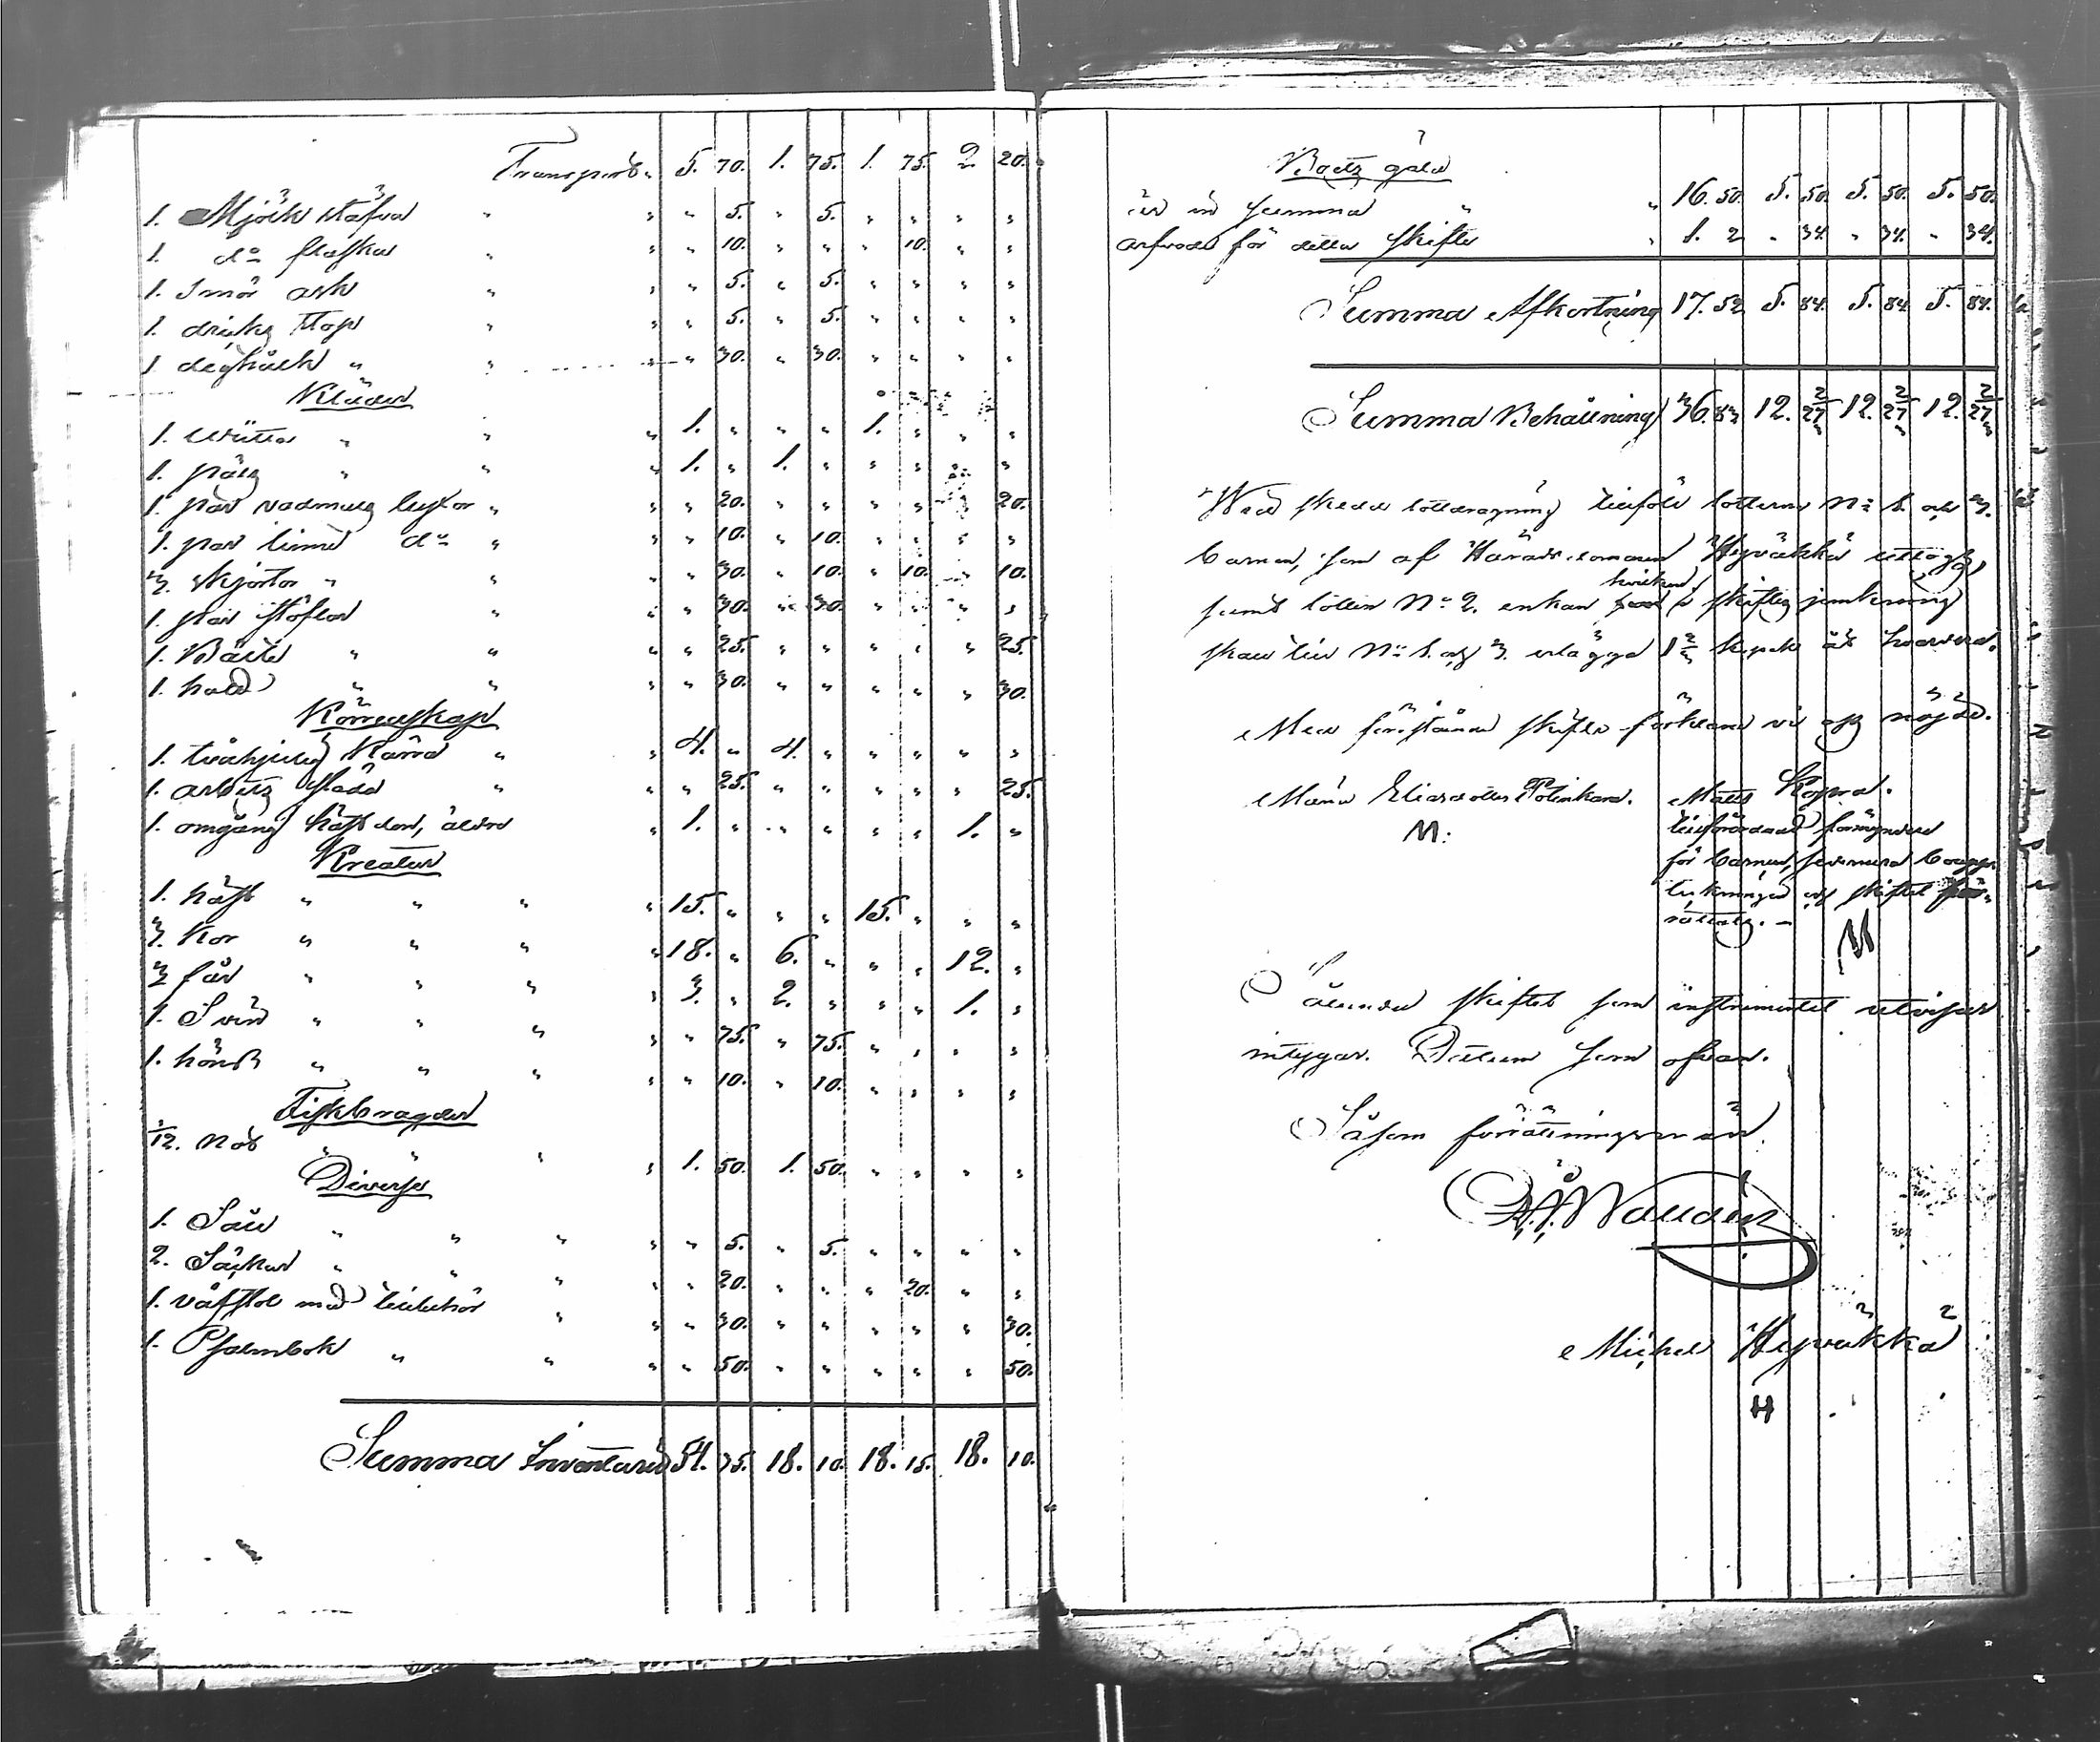 Transport 5. 70. 1. 75. 1. 75. 2. 20.
1. Mjölk stäfva " " " 5. " 5. " " " "
1. do flaska " " " 10. " " " 10. " "
1. Smör ask " " " 5. " 5. " " " "
1. dricks stop " " " 5. " 5. " " " "
1 degtråck " " " " 30. " 30. " " " "
Kläder
1. " " " 1. " " " 1. " " "
1. päls " " " 1. " 1. " " " " "
1. par vadmals byxor " " " 20. " " " " " 20.
1. par linne do " " " 10. " 10. " " " "
3. skjortor " " " " 30. " 10. " 10. " 10.
1. par stöflar " " " 30. " 30. " " " "
1. Bälte " " " " 25. " " " " " 25.
1. hatt " " " " 30. " " " " " 30.
Körredskap
1. tvåhjulig Kärra " " 4. " 4. " " " " "
1. arbets släda " " " 25. " " " " " 25.
1. omgång häst don, äldre " 1. " " " " " 1. "
Kreatur
1. häst " " " " 15. " " " 15. " " "
3. Kor " " " " 18. " 6. " " " 12. "
3 får " " " " 3. " 2. " " " 1. "
1. Svin " " " " " 75. " 75. " " " "
1. höns " " " " " 10. " 10. " " " "
Fiskbragder
1/12. Not " " " " 1. 50. 1. 50. " " " "
Diverse
1. Såll " " " " " 5. " 5. " " " "
2. Säckar " " " " " 20. " " " 20. " "
1. väfstol med tillbehör " " " 30. " " " " " 30.
1. Psalmbok " " " " 50. " " " " " 50.
Summa Inventarie 54. 75. 18. 10. 18. 15. 18. 10.
Boets gäld
är in summa " " 16. 50. 5. 50. 5. 50. 5. 50.
arfvode för detta skifte " 1. 2 " 34. " 34. " 34.
Summa Afkortning 17. 52 5. 84. 5. 84. 5. 84.
Summa Behållning 36. 83 12. 27 2/3 12. 27 2/3 12. 27 2/3
Wid skedd lottdragning tillföll lotterne No 1. och 3.
barnen, som af Häradsdomaren Hyväkkä uttogs,
samt lotten No 2. enkan hvilken skiftes jemkning
skall till No 1. och 3. erlägga 1 2/3 kopek åt hvardera.
Med förestående skifte förklara vi oss nöjde.
Maria Eliasdotter Tolinkara. Matts Kopra.
M: tillförordnad förmyndare
för barnen,
och skiftet för-
rättats. -
M
Sålunda skiftet som instrumentet utvisar
intygar. Datum som ofvan.
Såsom förrättningsmän
Wallden
Michel Hyväkkä
H